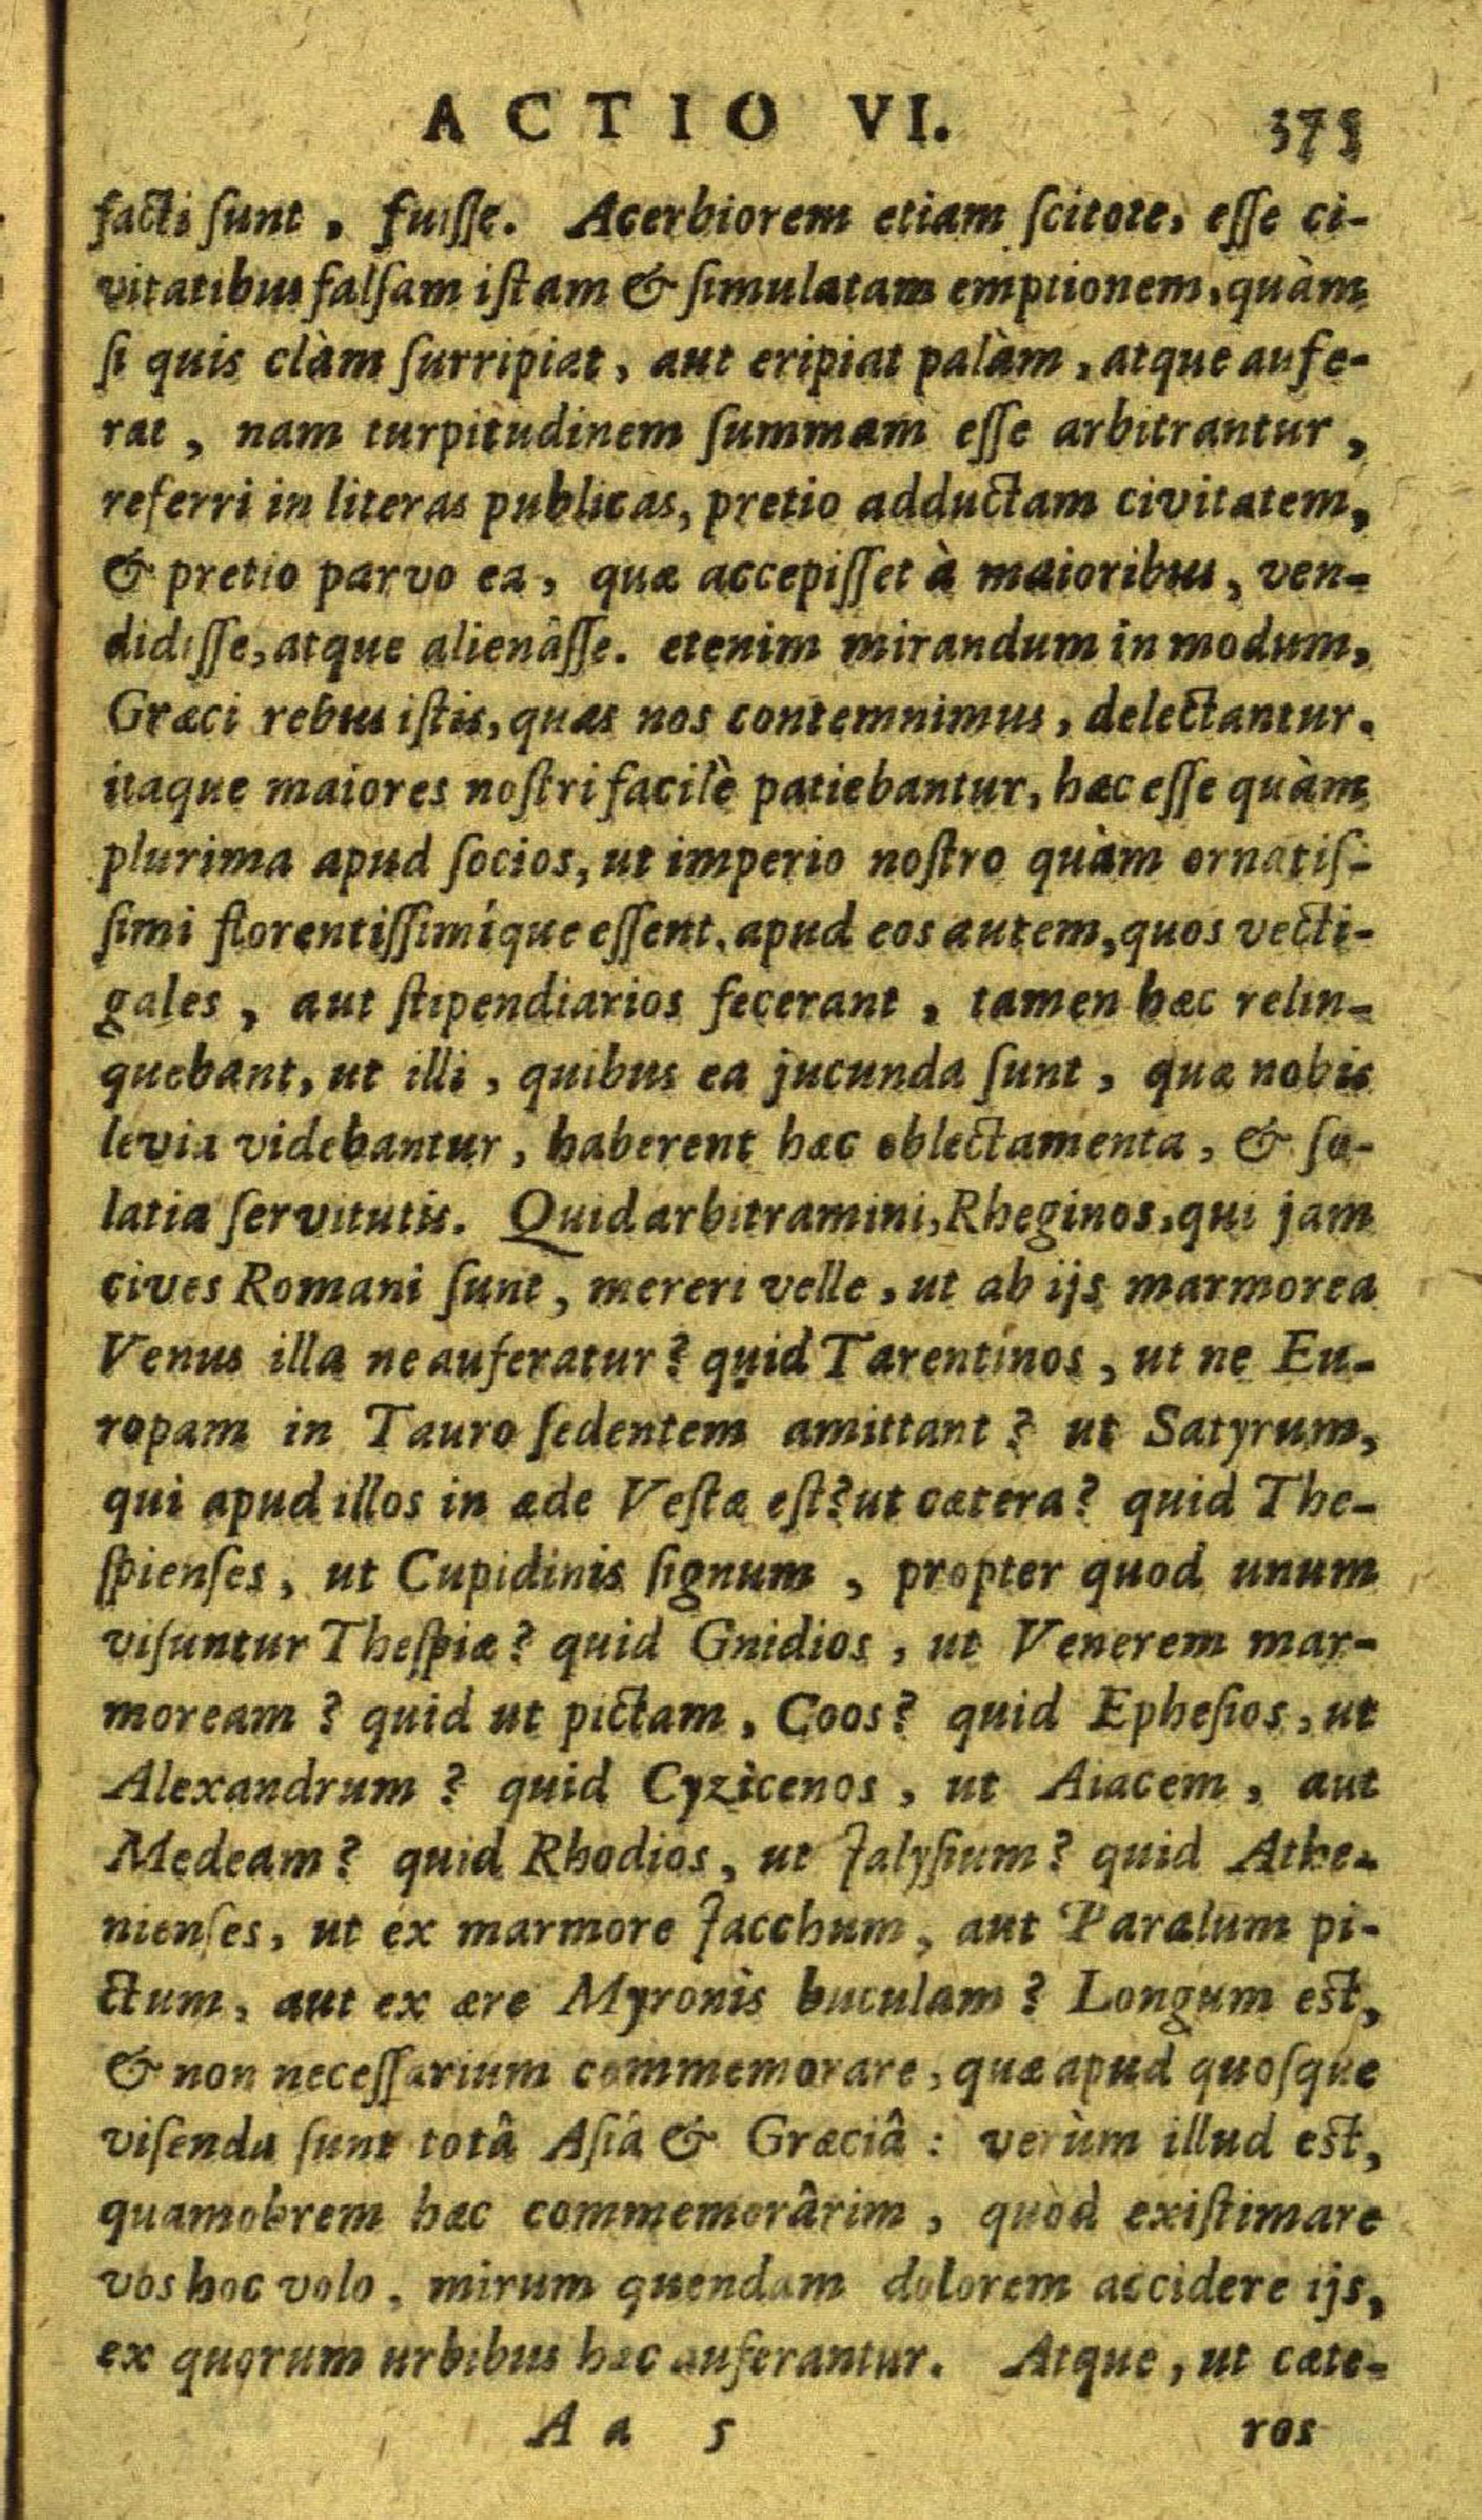 ACTIO VI. 375
facti ſunt, fuiſſe. Acerbiorem etiam ſcitote, eſſe ci-
vitatibus falſam iſtam & ſimulatam emptionem, quàm
ſi quis clàm ſurripiat, aut eripiat palàm, atque aufe-
rat, nam turpitudinem ſummam eſſe arbitrantur,
referri in literas publicas, pretio adductam civitatem,
& pretio parvo ea, quæ accepiſſet à maioribus, ven-
didiſſe, atque alienâſſe. etenim mirandum in modum,
Græci rebus iſtis, quas nos contemnimus, delectantur.
itaque maiores noſtri facilè patiebantur, hæc eſſe quàm
plurima apud ſocios, ut imperio noſtro quàm ornatiſ-
ſimi florentiſſimíque eſſent. apud eos autem, quos vecti-
gales, aut ſtipendiarios fecerant, tamen hæc relin-
quebant, ut illi, quibus ea jucunda ſunt, quæ nobis
levia videbantur, haberent hæc oblectamenta, & ſo-
latia ſervitutis. Quid arbitramini, Rheginos, qui jam
cives Romani ſunt, mereri velle, ut ab ijs marmorea
Venus illa ne auferatur? quid Tarentinos, ut ne Eu-
ropam in Tauro ſedentem amittant? ut Satyrum,
qui apud illos in æde Veſtæ eſt? ut cætera? quid The-
ſpienſes, ut Cupidinis ſignum, propter quod unum
viſuntur Theſpiæ? quid Gnidios, ut Venerem mar-
moream? quid ut pictam, Coos? quid Epheſios, ut
Alexandrum? quid Cyzicenos, ut Aiacem, aut
Medeam? quid Rhodios, ut Jalyſium? quid Athe-
nienſes, ut ex marmore Jacchum, aut Paralum pi-
ctum, aut ex ære Myronis buculam? Longum eſt,
& non neceſſarium commemorare, quæ apud quoſque
viſenda ſunt totâ Aſiâ & Græciâ: verùm illud eſt,
quamobrem hæc commemorârim, quòd exiſtimare
vos hoc volo, mirum quendam dolorem accidere ijs,
ex quorum urbibus hæc auferantur. Atque, ut cæte-
Aa 5 ros